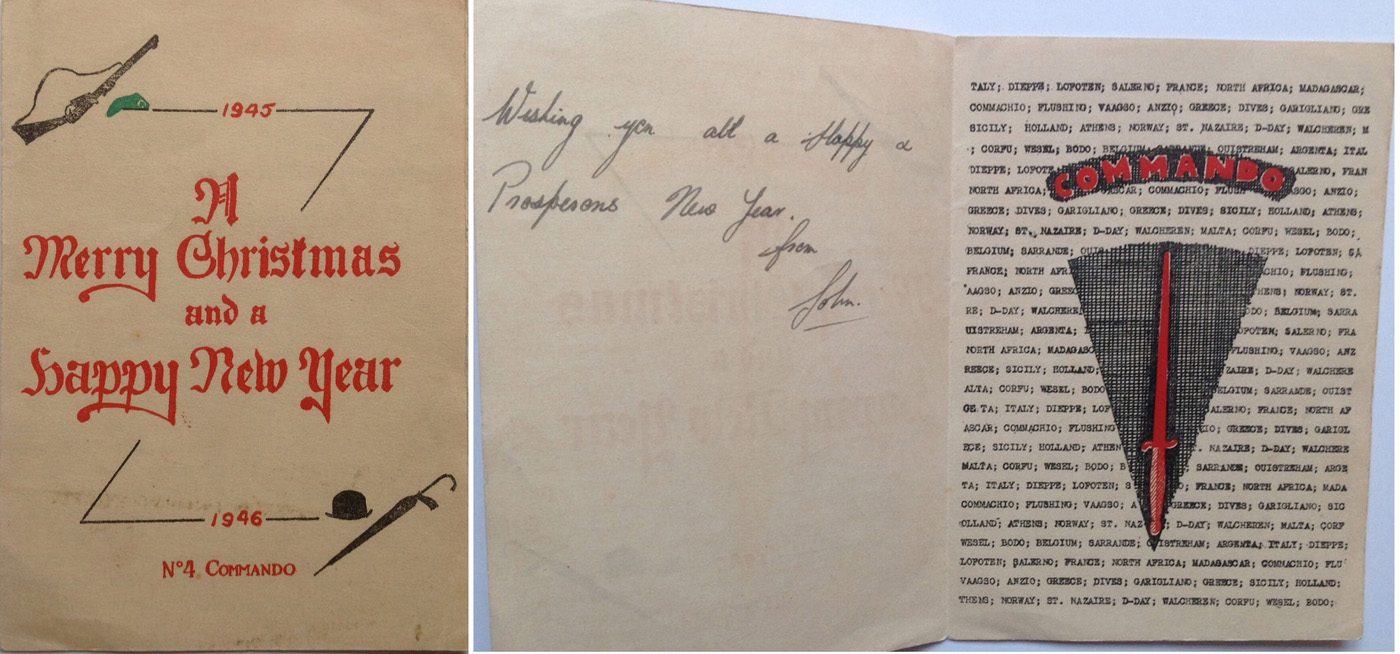 1945
A
Merry Christmas
and a
Happy New Year
1946
Nº4 COMMANDO
Wishing you all a Happy &
Prosperous New Year.
from
John.
TALY; DIEPPE; LOFOTEN; SALERNO; FRANCE; NORTH AFRICA; MADAGASCAR;
COMMACHIO; FLUSHING; VAAGSO; ANZIO; GREECE; DIVES; GARIGLIANO; GRE
SICILY; HOLLAND; ATHENS; NORWAY; ST. NAZAIRE; D-DAY; WALCHEREN; M
; CORFU; WESEL; BODO; BELGIUM; SARRANDE; OUISTREHAM; ARGENTA; ITAL
DIEPPE; LOFOTE ALERNO, FRAN
COMMANDO
NORTH AFRICA; ASCAR; COMMACHIO; FLUSH ASGO; ANZIO;
GREECE; DIVES; GARIGLIANO; GREECE; DIVES; SICILY; HOLLAND; ATHENS;
NORWAY; ST. NAZAIRE; D-DAY; WALCHEREN; MALTA; CORFU; WESEL; BODO;
BELGIUM; SARRANDE; OUIS DIEPPE; LOFOTEN; SA
FRANCE; NORTH AFRI CHIO; FLUSHING;
AAGSO; ANZIO; GREEC HENS; NORWAY; ST.
RE; D-DAY; WALCHERE ODO; BELGIUM; SARRA
UISTREHAM; ARGENTA; I OFOTEN; SALERNO; FRA
NORTH AFRICA; MADAGASC FLUSHING; VAAGSO; ANZ
REECE; SICILY; HOLLAND; ZAIRE; D-DAY; WALCHERE
ALTA; CORFU; WESEL; BODO ELGIUM; SARRANDE; OUIST
GE TA; ITALY; DIEPPE; LOF ALERNO; FRANCE; NORTH AF
ASCAR; COMMACHIO; FLUSHING IO; GREECE; DIVES; GARIGL
ECE; SICILY; HOLLAND; ATHEN . NAZAIRE; D-DAY; WALCHERE
MALTA; CORFU; WESEL; BODO; B SARRANDE; OUISTREHAM; ARGE
TA; ITALY; DIEPPE; LOFOTEN; S O; FRANCE; NORTH AFRICA; MADA
COMMACHIO; FLUSHING; VAAGSO; A GREECE; DIVES; GARIGLIANO; SIC
OLLAND; ATHENS; NORWAY; ST. NAZ ; D-DAY; WALCHEREN; MALTA; CORF
WESEL; BODO; BELGIUM; SARRANDE; OUISTREHAM; ARGENTA; ITALY; DIEPPE;
LOFOTEN; SALERNO; FRANCE; NORTH AFRICA; MADAGASCAR; COMMACHIO; FLU
VAAGSO; ANZIO; GREECE; DIVES; GARIGLIANO; GREECE; SICILY; HOLLAND;
THENS; NORWAY; ST. NAZAIRE; D-DAY; WALCHEREN; CORFU; WESEL; BODO;